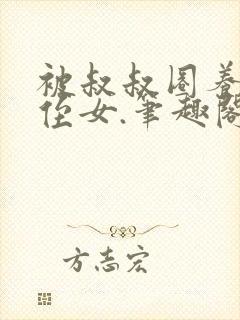 被叔叔圈养
侄女.笔趣阁
方志宏